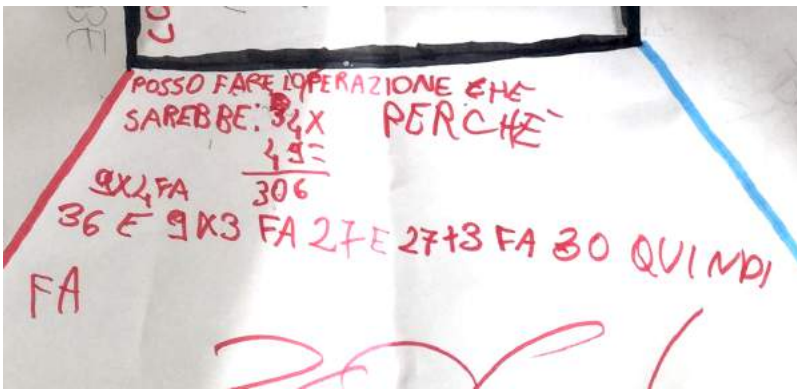 POSSO FARE L'OPERAZIONE CHE
SAREBBE: 34X PERCHÈ
49=
306
9X4 FA
36 E 9X3 FA 27 E 27+3 FA 30 QUINDI
FA